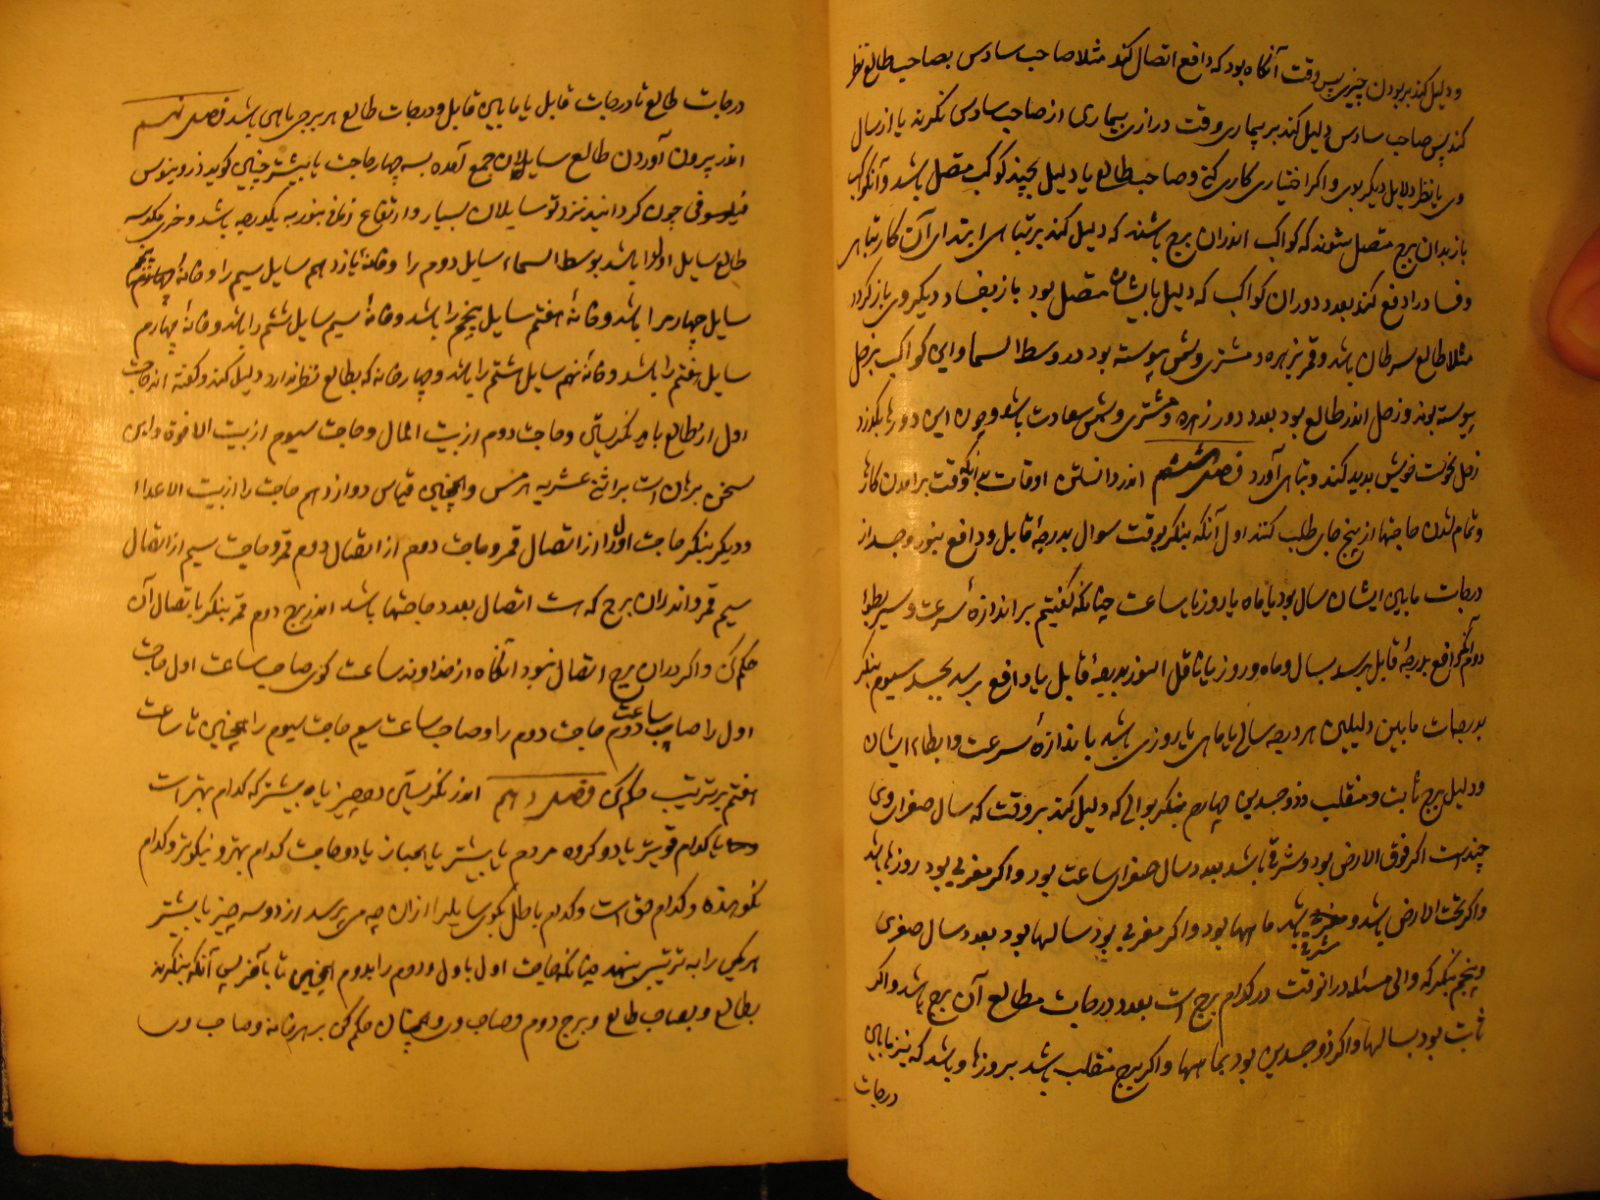 و دلیل کند بر بودن چیزی پس وقت آنگاه بود که دافع اتصال کند مثلا صاحب سادس بصاحب طالع نظر
کند پس صاحب سادس دلیل کند بر بیماری وقت درازی بیماری از صاحب سادس نگرند یا از سال
وی یا نظر دلایل دیگر بوی و اکر اختیاری کاری کنی و صاحب طالع یا دلیل بچند کوکب متصل باشد و آن کواکب
باز بدان برج متصل شوند که کواکب اندران برج باشند که دلیل کند بر تباهی ابتدای آن کار تباهی
و فساد را دفع کند بعدد دوران کواکب که دلیل بایشان متصل بود باز بفساد دیگر وی باز کردد
مثلا طالع سرطان باشد و قمر بزهره و مشتری و شمس پیوسته بود در وسط السما و این کواکب بزحل
پیوسته بوند و زحل اندر طالع بود بعدد دور زهره و مشتری و شمس سعادت باشد و چون این دورها بگذرد
زحل نحوست خویش بدید کند و تباهی آورد فصل ششم اندر دانستن اوقات وقت برآمدن کارها
و تمام شدن حاجتها از پنج جای طلب کنند اول آنکه بنکر بوقت سوال بدرجهٔ قابل و دافع بنور و چند از
درجات مابین ایشان سال بود یا ماه یا روز یا ساعت چنانکه گفتیم بر اندازهٔ سرعت و سیر بطوء
دوم آنکه دافع بدرجهٔ قابل برسد بسال و ماه و روز یا ناقل النور بدرجهٔ قابل یا دافع برسد بجسد سیوم بنکر
بدرجات مابین دلیلین هر درجه سالی یا ماهی یا روزی باشد باندازهٔ سرعت و ابطاء ایشان
و دلیل برج ثابت و منقلب و ذوجسدین چهارم بنکر بوالی که دلیل کند بر وقت که سال صغرای وی
چند است اکر فوق الارض بود و شرقی باشد بعدد سال صغرای ساعت بود و اکر مغربی بود روزها باشد
و اکر تحت الارض باشد و شرقی باشد ماهها بود و اکر مغربی بود سالها بود بعدد سال صغری
و پنجم بنکر که والی مسئله در انوقت در کدام برج است بعدد درجات مطالع آن برج باشد و اکر
ثابت بود بسالها و اکر ذوجسدین بود بماهها و اکر برج منقلب باشد بروزها و باشد که نیز مابین
درجات
درجات طالع تا درجات قابل یا مابین قابل و درجات طالع هر برجی ماهی باشد فصل نهم
اندر بیرون آوردن طالع سایلان جمع آمده بسه چهار حاجت یا بیشتر چنین کوید ذروینوس
فیلسوف چون کرد آیند نزد تو سایلان بسیار و ارتفاع زمانی هنوز به یکدرجه باشد
طالع سایل اول را باشد و وسط السماء سایل دوم را و خانهٔ یازدهم سایل سیم را و خانهٔ پنجم
سایل چهارم را باشد و خانهٔ هفتم سایل پنجم را باشد و خانهٔ سیم سایل ششم را باشد و خانهٔ چهارم
سایل هفتم را باشد و خانهٔ نهم سایل هشتم را باشد و چهار خانه که بطالع نظر ندارد دلیل کند و کفته اند حاجت
اول از طالع باید نکریستن و حاجت دوم از بیت المال و حاجت سیوم از بیت الاخوة و این
سخن برهان است بر اثنی عشریه هرمس و همچنین قیاس دوازدهم حاجت را از بیت الاعداء
و دیکر بنکر حاجت اول را از اتصال قمر و حاجت دوم از اتصال دوم قمر و حاجت سیم از اتصال
سیم قمر و اندران برج که هست اتصال بعدد حاجتها باشد اندر برج دوم قمر بنکر باتصال آن
حکم کن و اکر دران برج اتصال نبود آنگاه از خداوند ساعت کوی صاحب ساعت اول حاجت
اول را صاحب ساعت دوم حاجت دوم را و صاحب ساعت سیم حاجت سیوم را همچنین تا ساعت
هفتم بر ترتیب حکم کن فصل دهم اندر نکریستن دو چیز یا بیشتر که کدام بهتر است
یا کدام قویتر یا دو کروه مردم یا بیشتر یا دو حاجت کدام بهتر و نیکوتر و کدام
نکوهیده و کدام حق است و کدام باطل بکوی سایل را ازان چه می پرسد از دو سه چیز یا بیشتر
هر یکی را به ترتیب بنهد چنانکه حاجت اول باول و دوم را بدوم همچنین تا بآخر پس آنکه بنکرند
بطالع و بصاحب طالع و برج دوم و صاحب وی و همچنان حکم کن بهر خانه و صاحب وی